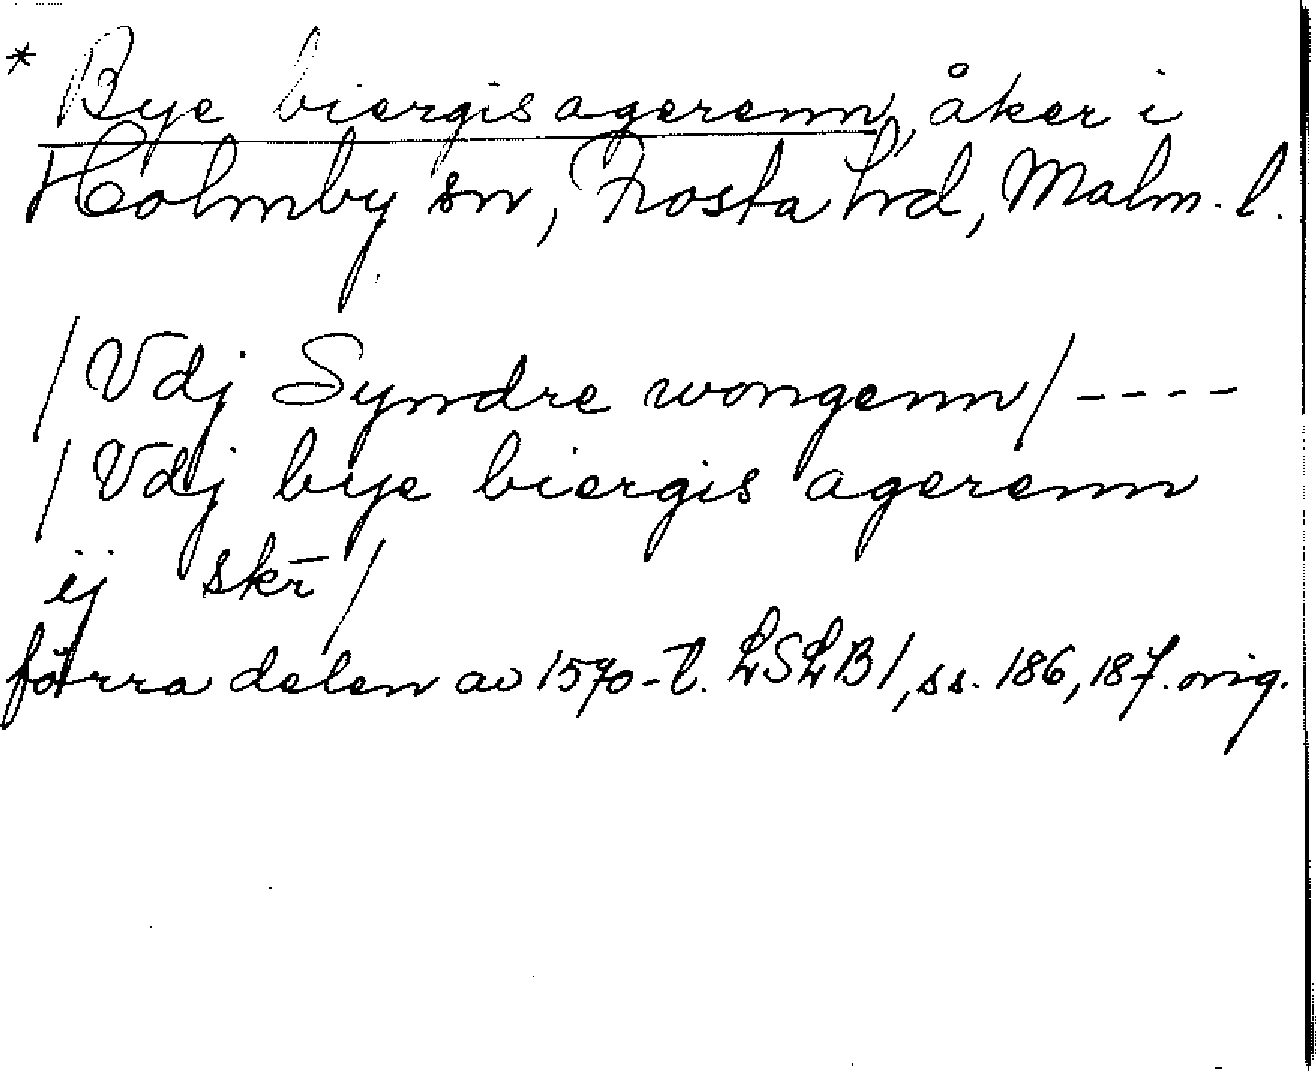 * Bye biergis agerenn, åker i
Holmby sn, Frosta hd, Malm. l.
/ Vdj Syndre wongenn / ----
/ Vdj bye biergis agerenn
ij skr̄ /
förra delen av 1570-t. LSLB 1, ss. 186, 187. orig.